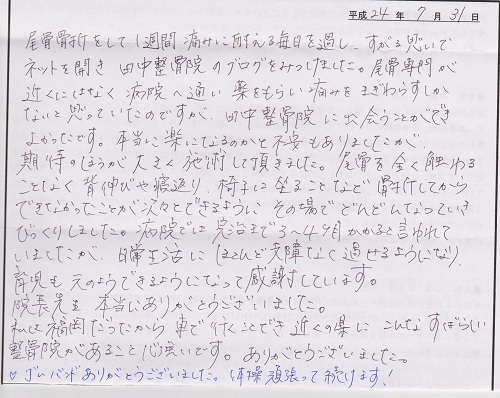 平成24年7月31日
尾骨骨折をして1週間痛みに耐える毎日を過し、すがる思いで
ネットを開き田中整骨院のブログをみつけました。尾骨専門が
近くにはなく病院へ通い薬をもらい痛みをまぎわらすしか
ないと思っていたのですが、田中整骨院に出会うことができ
よかったです。本当に楽になるのかと不安もありましたが、
期待のほうが大きく施術して頂きました。尾骨を全く触わる
ことなく背伸びや寝返り、椅子に坐ることなど骨折してから
できなかったことが次々とできるように その場でどんどんなっていき
びっくりしました。病院では完治まで3〜4ヶ月かかると言われて
いましたが、日常生活にほとんど支障なく過せるようになり
育児も元のようできるようになって感謝しています。
院長先生 本当にありがとうございました。
私は福岡だったから車で行くことでき近くの県にこんなすばらしい
整骨院があること心強いです。ありがとうございました。
♡ゴムバンドありがとうございました。体操頑張って続けます!